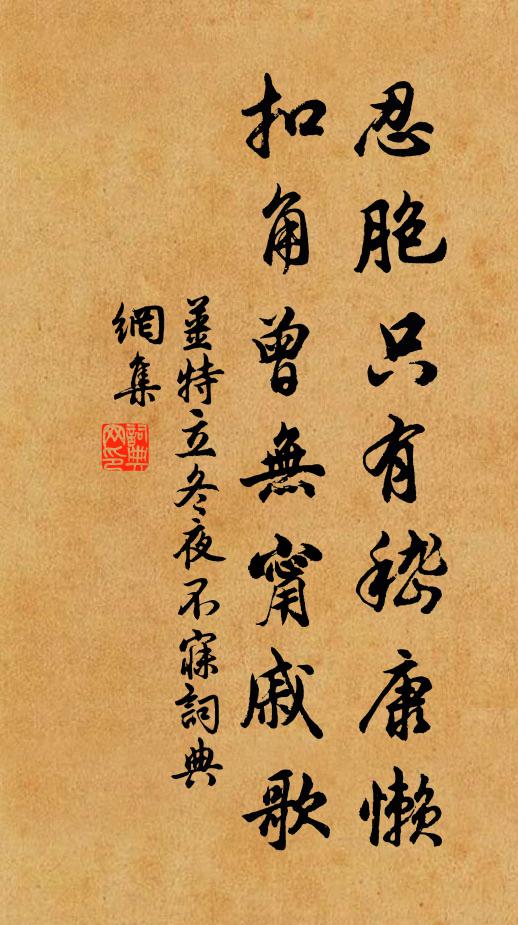 忍胞只有嵇康懶
扣角曾無甯戚歌
薑特立冬夜不寐詞典
網集
詞典
网印